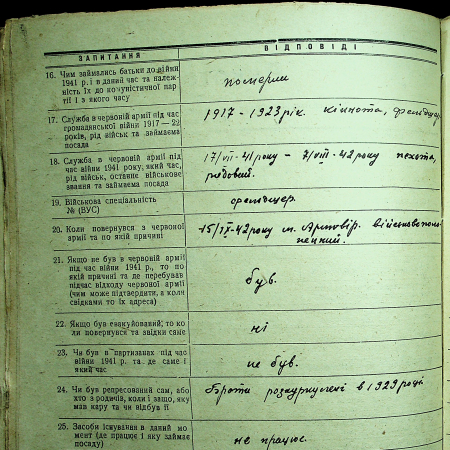 ЗАПИТАННЯ
ВІДПОВІДІ
16. Чим займались батьки до війни
1941 р. і в даний час та належ-
ність їх до комуністичної пар
тії і з якого часу
померли
17. Служба в червоній армії під час
громадянської війни 1917—22
років, рід військ та займаєма
посада
1917 – 1923 рік. кіннота, фельдшер
18. Служба в червоній армії під
час війни 1941 року, який час,
рід військ, останнє військове
звання та займаєма посада
17/VII - 41 року – 7/VIII - 42 року пехота,
рядовий.
19. Військова спеціальність
№ (ВУС)
фельдшер.
20. Коли повернувся з червоної
армії та по якій причині
15/IX-42 року м. Армовір. військовопо-
нений.
21. Якщо не був в червоній армії
під час війни 1941 р., то по
якій причині та де перебував
під час відходу червоної армії
(чим може підтвердити, в коля
свідками то їх адреса)
був.
22. Якщо був евакуйований, то ко
ли повернувся та звідки саме
ні
23. Чи був в партизанах під час
війни 1941 р. та де саме і
який час
не був.
24. Чи був репресований сам, або
хто з родичів, коли і защо, яку
мав кару та чи відбув її
Брати розкуркулені в 1929 році
25. Засоби існування в даний мо
мент (де працює і яку займає
посаду)
не працює.